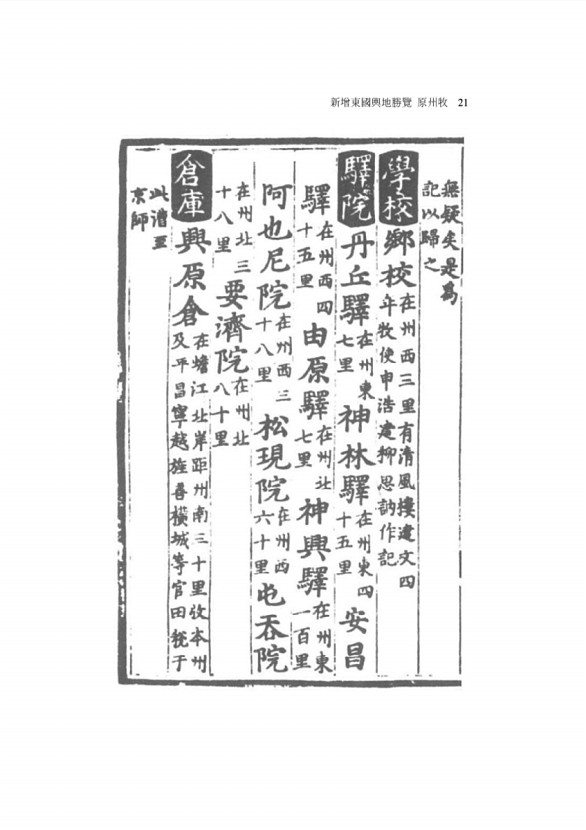 新增東國輿地勝覽 原州牧 21
無疑矣是爲
記以歸之
學校 鄕校 在州西三里有清風樓建文四
年牧使申浩建柳思訥作記
驛院 丹丘驛 在州東七里 神林驛 在州東四十五里 安昌
驛 在州西四十五里 由原驛 在州北七里 神興驛 在州東一百里
阿也尼院 在州西三十八里 松現院 在州西六十里 屯呑院
在州北三十八里 要濟院 在州北八十里
倉庫 興原倉 在蟾江北岸距州南三十里收本州
及平昌寧越旌善橫城等官田稅于
此漕至
京師